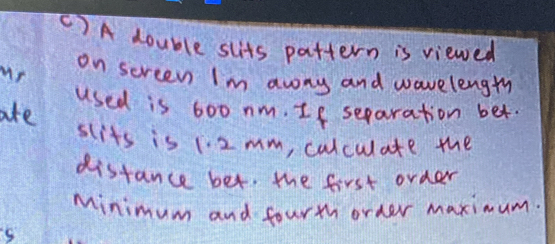 c) A double slits pattern is viewed
on screen 1m away and wavelength
used is 600 nm. If separation bet.
ate
slits is 1.2 mm, calculate the
distance bet. the first order
minimum and fourth order maximum.